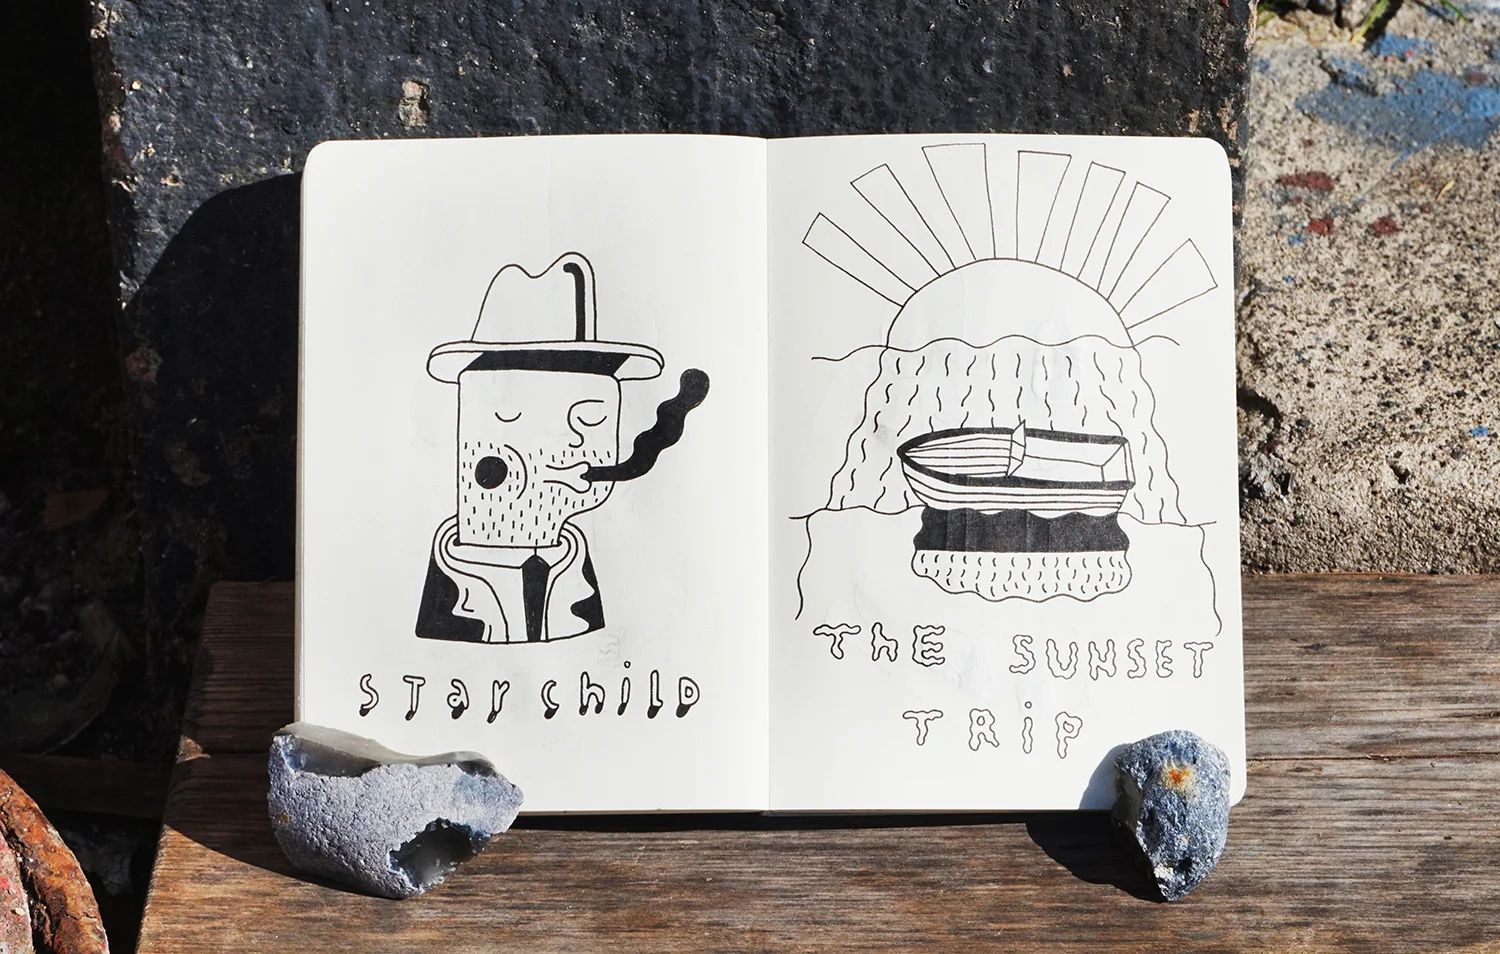 STarchilD
ThE SUNSET
TRiP